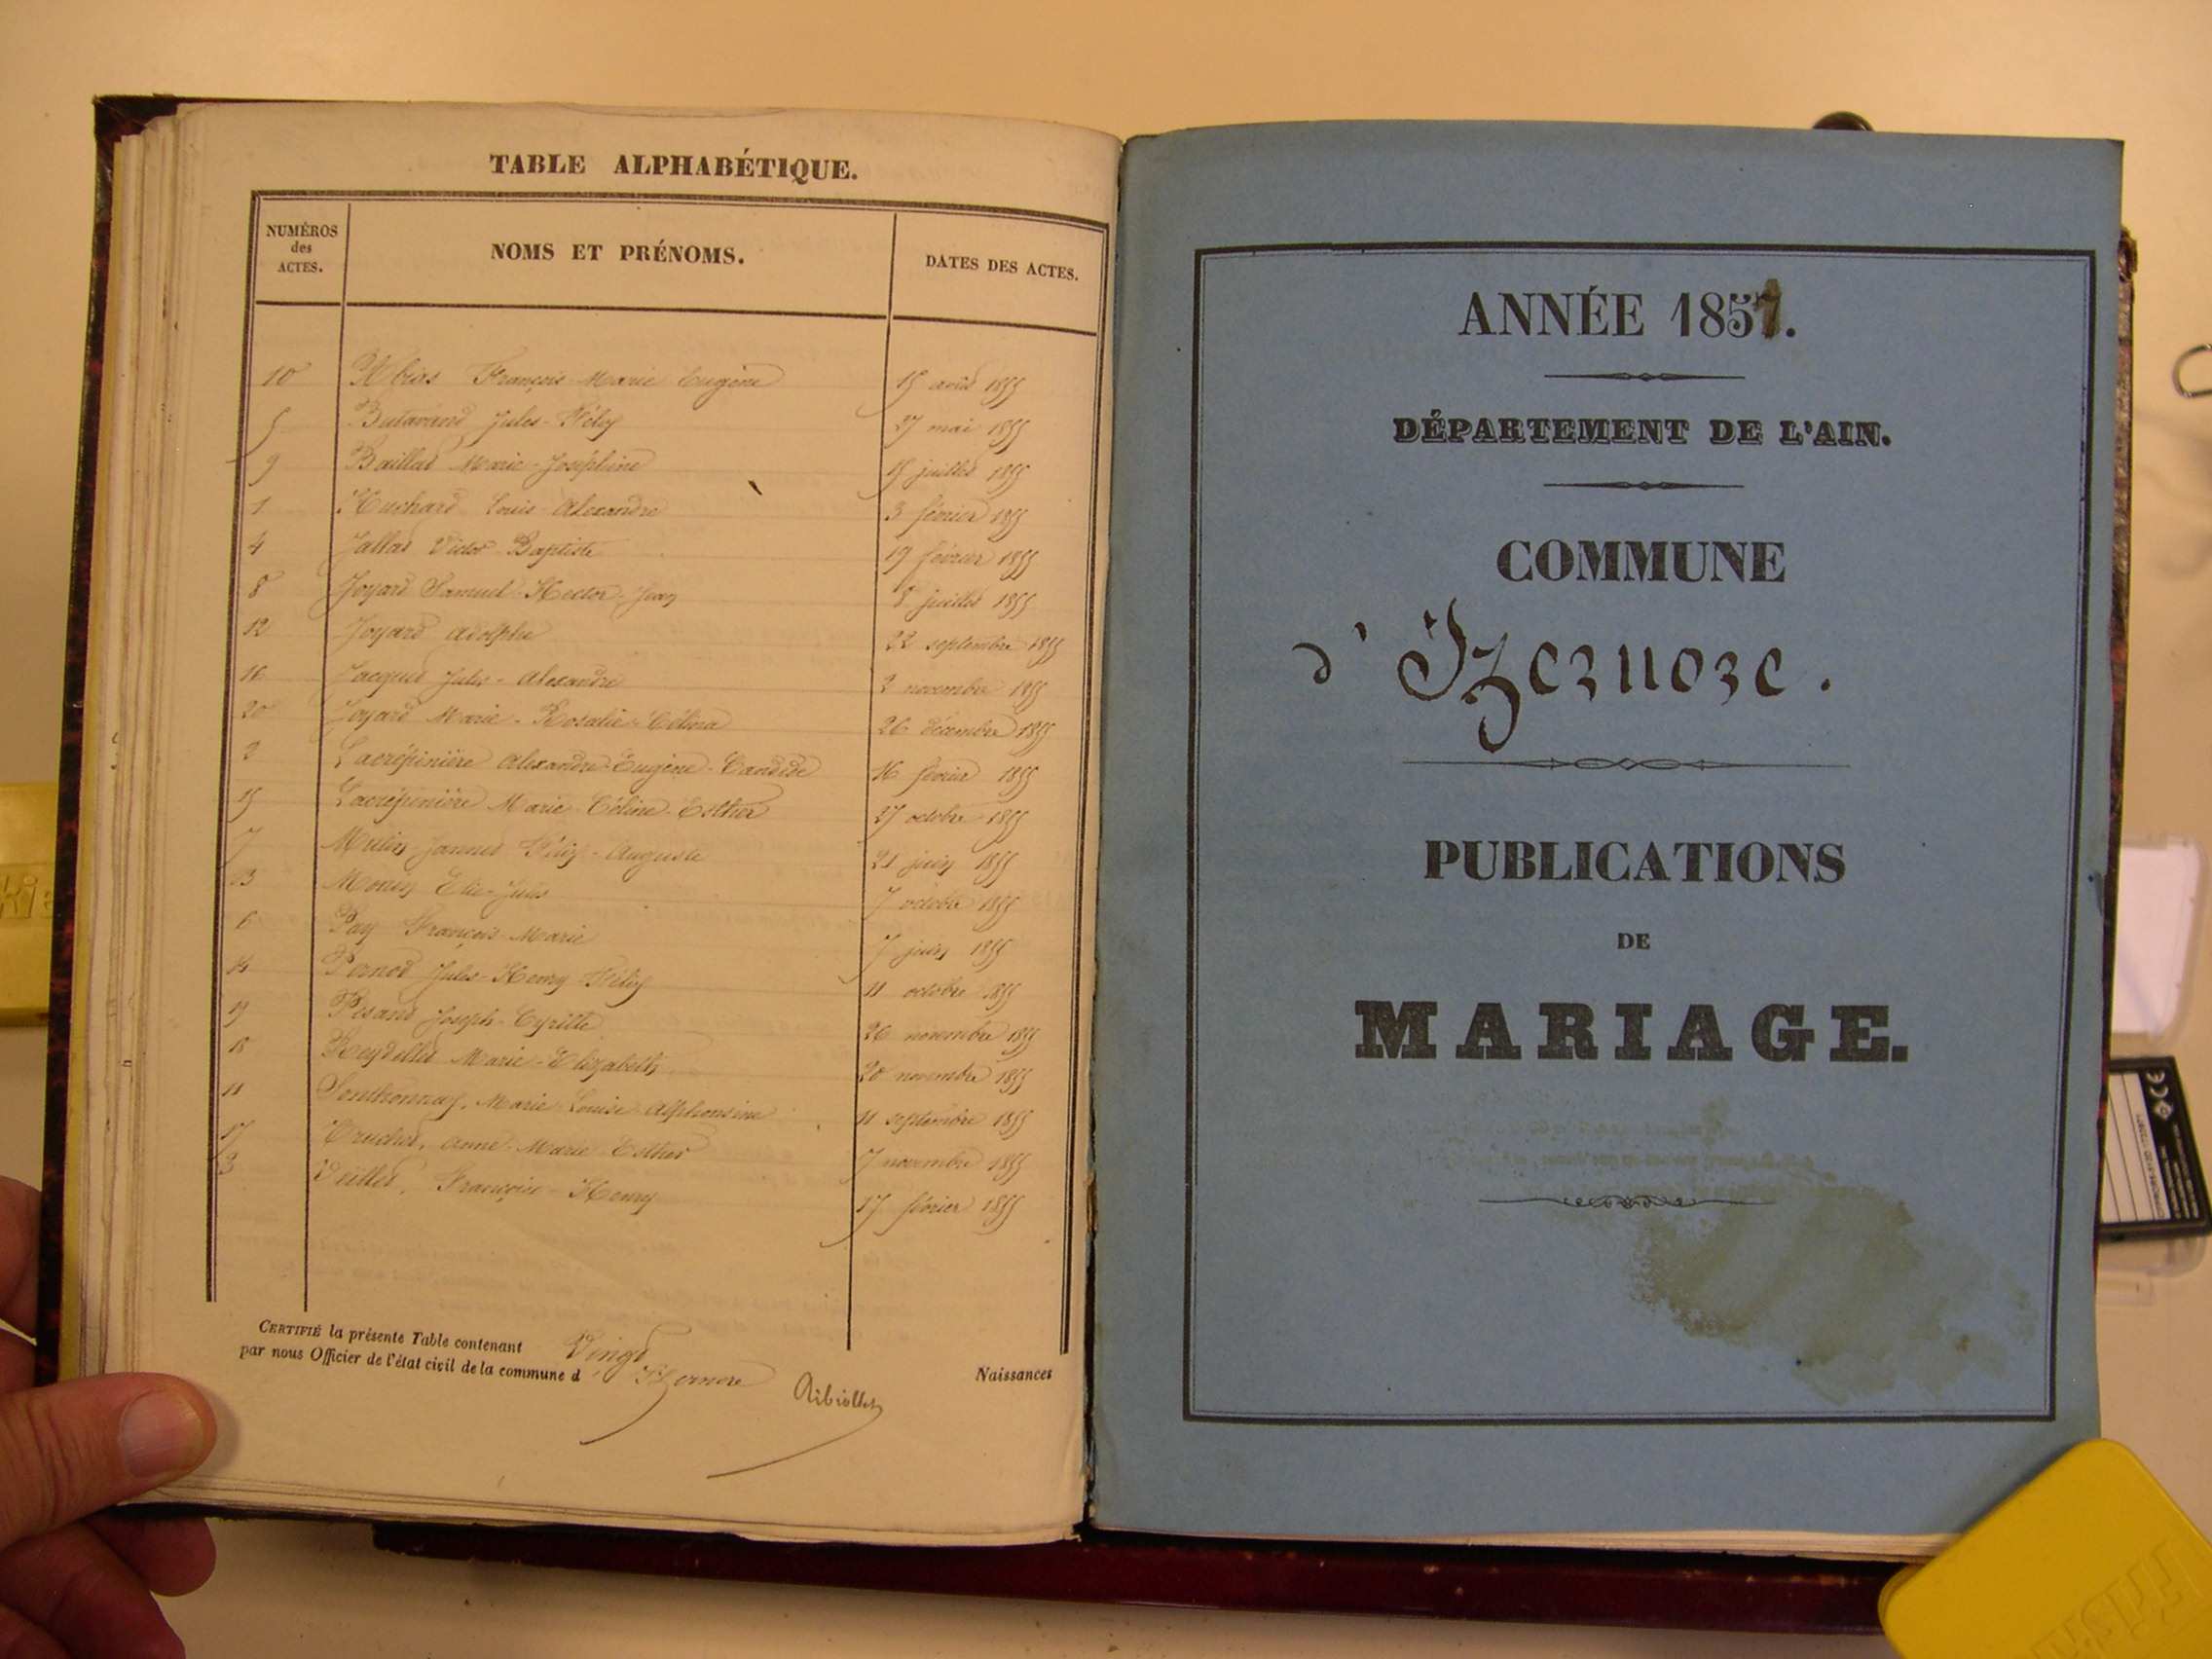 TABLE ALPHABÉTIQUE.
NUMÉROS
des
ACTES.
NOMS ET PRÉNOMS.
DATES DES ACTES.
10 François Marie Eugène 15 août 1855
5 Butavand Jules-Félix 27 mai 1855
9 Baillad Marie-Joséphine 15 juillet 1855
1 Huchard Louis Alexandre 3 février 1855
4 Jallad Victor Baptiste 19 février 1855
8 Joyard Samuel-Hector-Jean 8 juillet 1855
12 Joyard Adolphe 22 septembre 1855
16 Jacquet Jules-Alexandre 2 novembre 1855
20 Joyard Marie-Rosalie-Célina 26 décembre 1855
2 Lacrépinière Alexandre-Eugène-Candide 16 février 1855
15 Lacrépinière Marie Céline Esther 27 octobre 1855
7 Félix-Auguste 21 juin 1855
13 Elie-Jules 7 octobre 1855
6 Pay François-Marie 7 juin 1855
14 Pernod Jules-Henry-Félix 11 octobre 1855
19 Joseph-Cyrille 26 novembre 1855
18 Reydellet Marie-Elizabeth 20 novembre 1855
11 Sonthonnax, Marie Louise Alphonsine 11 septembre 1855
17 Truchet, Anne-Marie Esther 7 novembre 1855
3 Veillet, François-Henry 17 février 1855
CERTIFIÉ la présente Table contenant Vingt Naissances
par nous Officier de l'état civil de la commune d'Izernore
ANNÉE 1857.
DÉPARTEMENT DE L'AIN.
COMMUNE
d'Izernore.
PUBLICATIONS
DE
MARIAGE.